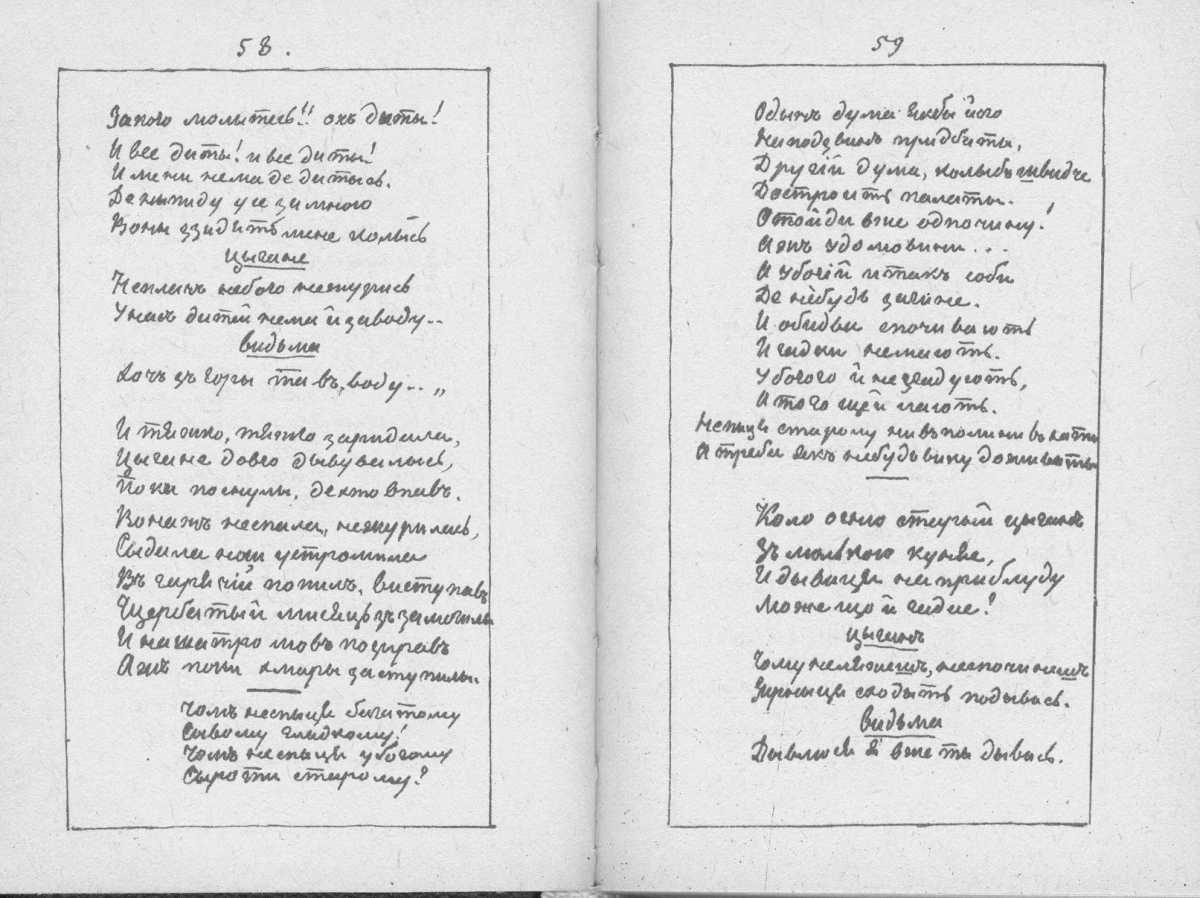 58.
За кого молытесь!! охъ диты!
И все диты! и все диты!
И мени нема де дитысь.
Де ныпиду усе за мною
Воны ззидить мене колысь
цыгане
Неплачъ небого нежурись
У насъ дитей нема й заводу..
видьма
Хочъ зъ горы та въ воду.. „
И тяжко, тяжко зарыдала,
Цыгане довго дывувались,
Поки поснулы, де хто впавъ.
Вонажъ неспала, нежурилась,
Сыдила ноги устромила
Въ гарячій попилъ. виступавъ
Щербатый мисяць зъ за могилы
И на шатро мовъ позиравъ
Ажъ поки хмары заступилы.
Чомъ неспыця багатому
Сывому гладкому!
Чомъ неспыця убогому
Сыроти старому?
59
Одынъ дума якбы його
На подзвинъ прыдбаты,
Другій дума, колыбъ швидче
Достроить палаты.
Отойди вже одпочину!
Ажъ у домовини...
А убогій и такъ соби
Де небудь загине.
И обидви спочивають
И гадки немають.
Убогого й незгадують,
А того щей лають.
Неспыця старому ни въ поли ни въ хати
А треба якъ небудь вику доживаты
Коло огню старый цыганъ
Зъ люлькою куняе,
И дывиця на приблуду
Може що й гадае?
цыганъ
Чому нелягаешъ, неспочинешъ
Зирныця сходыть подывысь.
видьма
Дывлюся я вже ты дывысь.